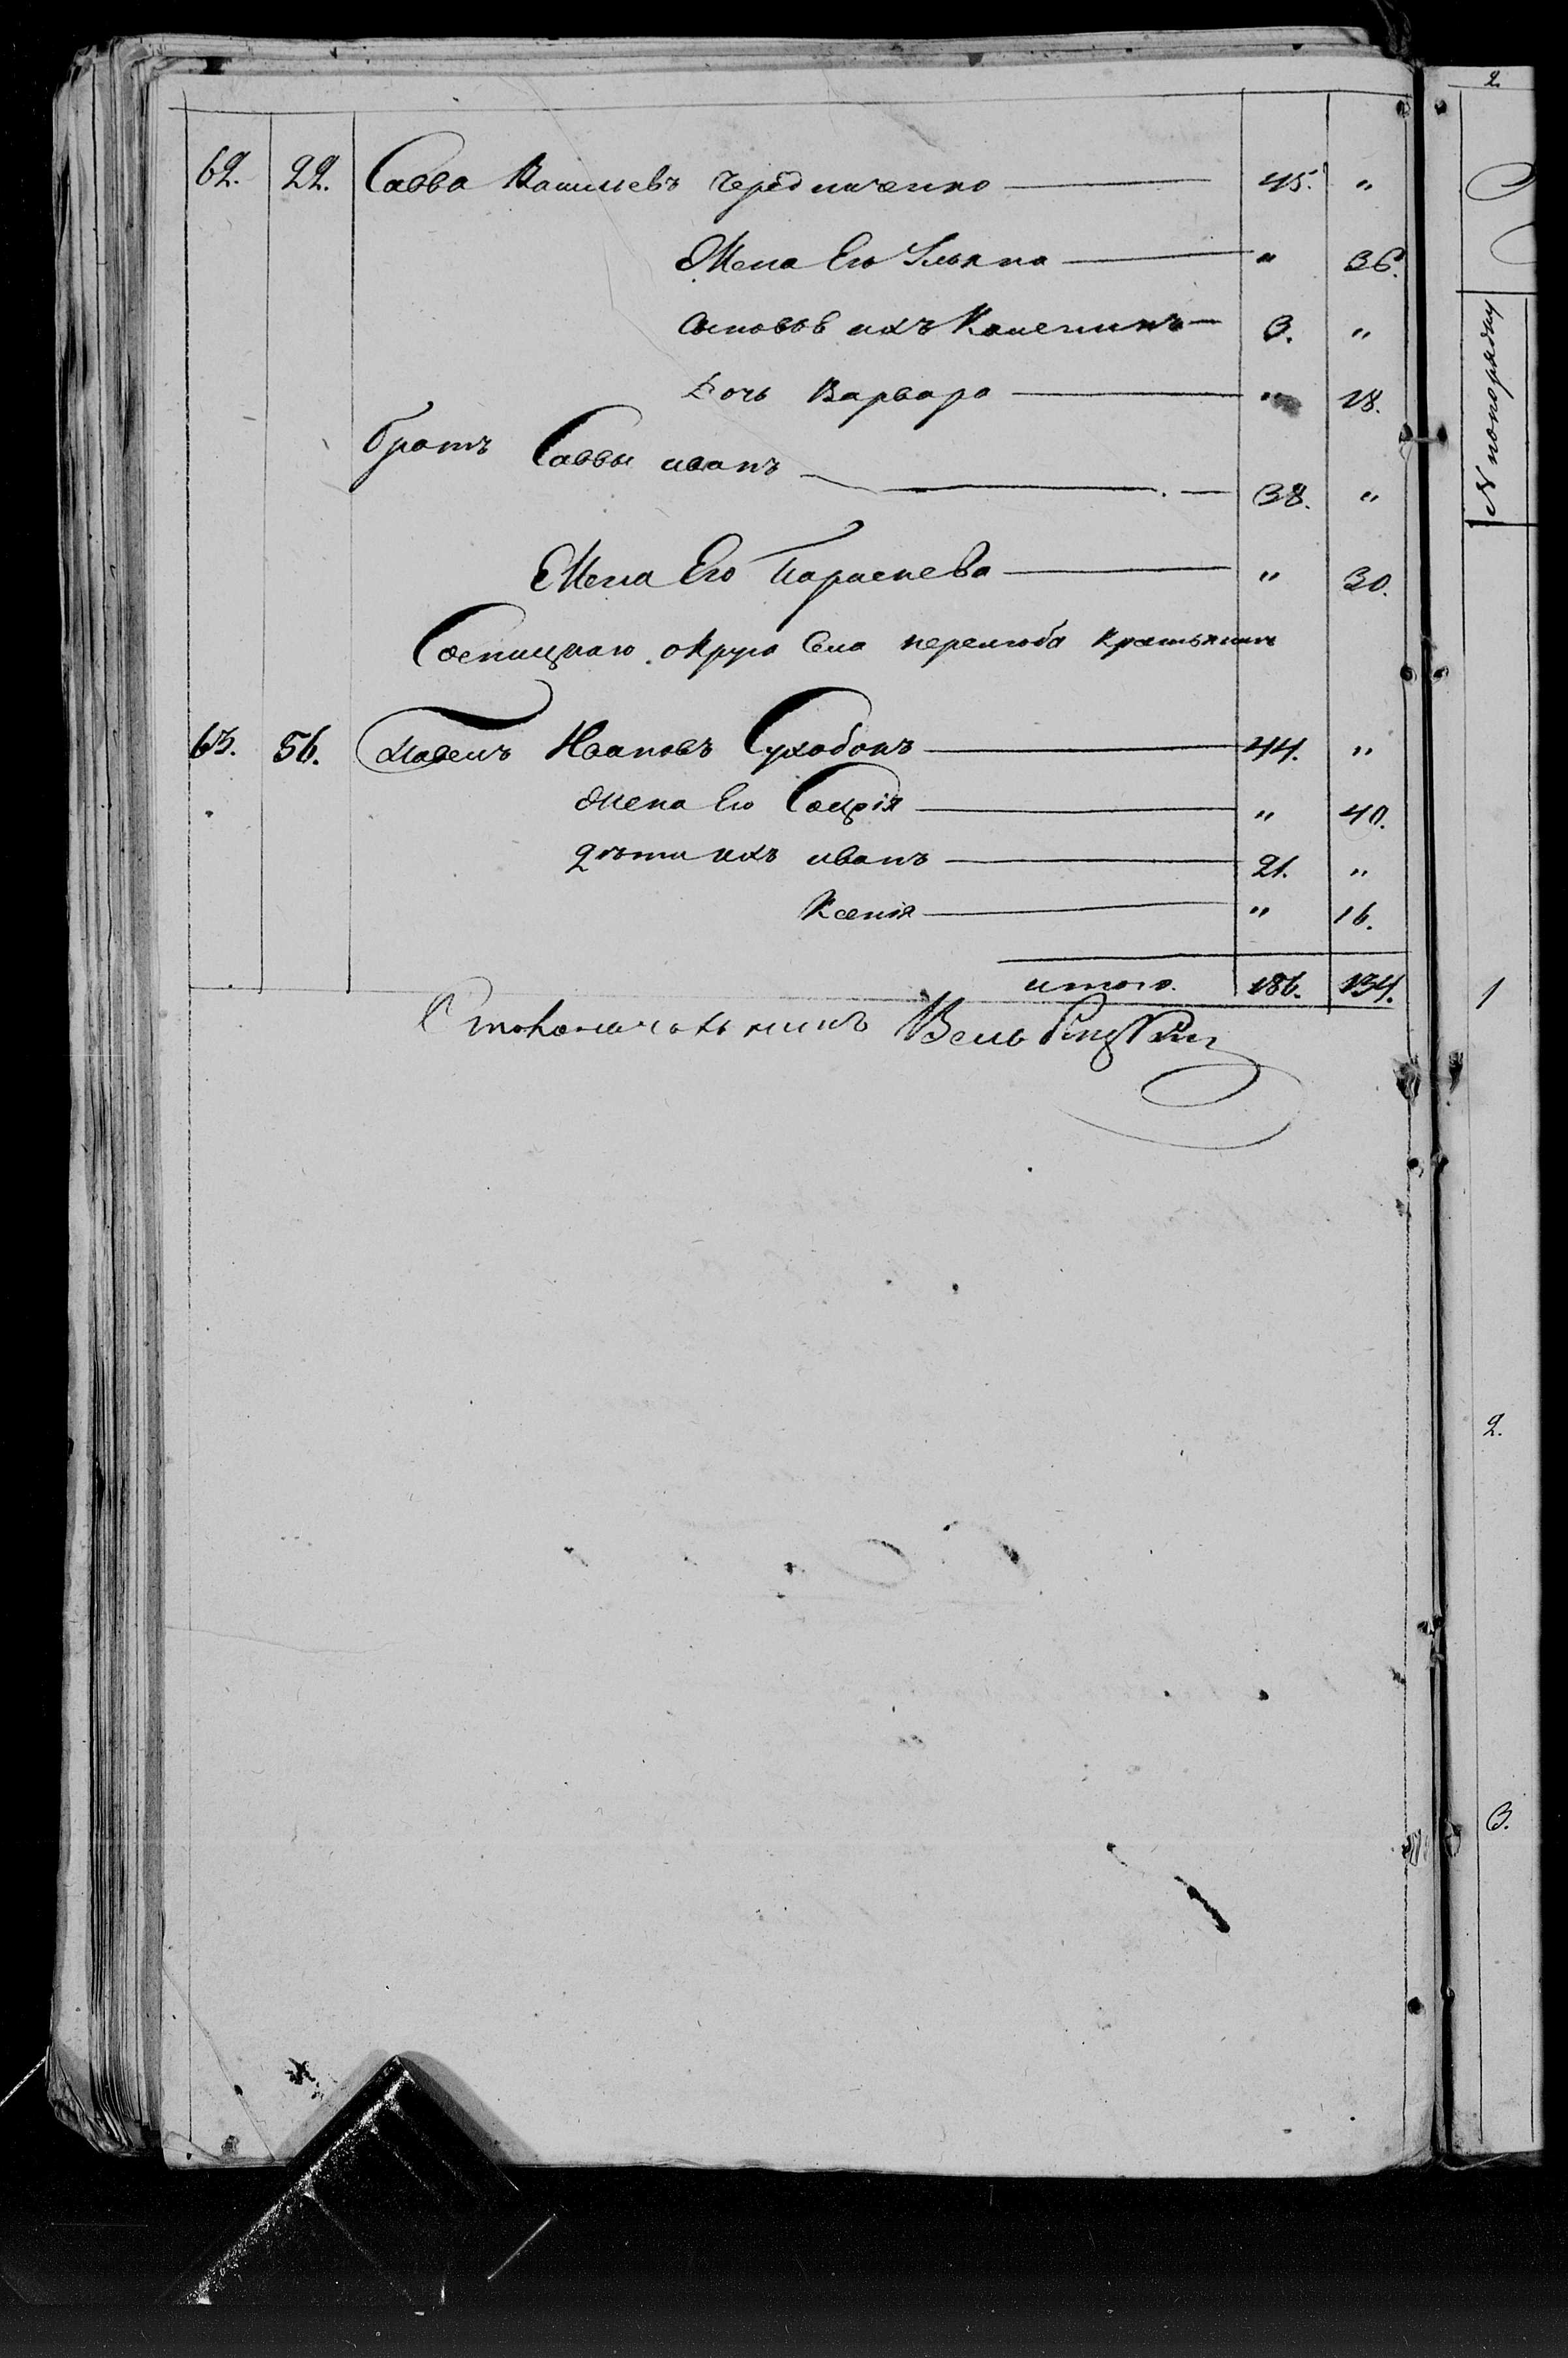 62. 22. Савва Васильевъ Чередниченко 45. "
Жена Его Ульяна " 36.
сыновъ ихъ 3. "
Дочь Варвара " 18.
братъ Саввы иванъ 38. "
Жена Его Параскева " 30.
Сосницкаго округа Села перелюба
63. 56. Павелъ Ивановъ Сухобокъ 44. "
Жена Его " 40.
дѣти ихъ иванъ 21. "
Ксенія " 16.
итого. 186. 134.
Столоначальникъ
2.
№ попорядку
1
2.
3.